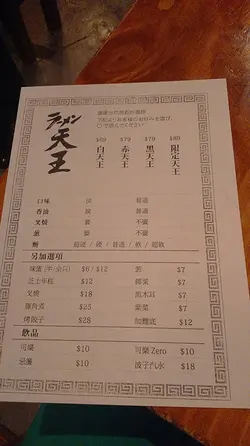 ラーメン
天王
○で選んでください
$69 $79 $79 $89
白天王 赤天王 黑天王 限定天王
口味 淡 普通
香油
叉燒 不要
蔥 不要
麵 超硬 / 硬 / 普通 / 軟 / 超軟
另加選項
味蛋 (半/全只) $6 / $12
芝士年糕 $12
叉燒 $18
$25
烤餃子 $28
蔥 $7
$7
黑木耳 $7
紫菜 $7
加麵底 $12
飲品
可樂 $10
忌廉 $10
可樂 Zero $10
波子汽水 $18